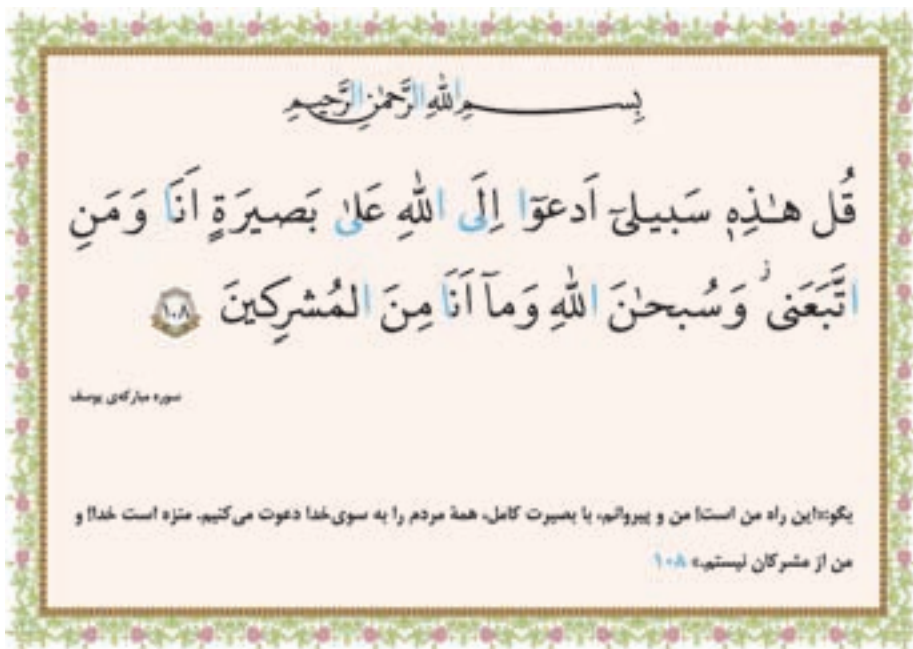 بِسمِ اللهِ الرَّحمٰنِ الرَّحیمِ
قُل هٰذِهٖ سَبیلیٓ اَدعوٓا اِلَی اللهِ عَلیٰ بَصیرَةٍ اَنَا وَ مَنِ
اتَّبَعَنی ۖ وَ سُبحٰنَ اللهِ وَ مآ اَنَا مِنَ المُشرِکینَ ۱۰۸
سوره مبارکه‌ی یوسف
بگو:«این راه من است! من و پیروانم، با بصیرت کامل، همهٔ مردم را به سوی‌خدا دعوت می‌کنیم. منزه است خدا! و
من از مشرکان نیستم.» ۱۰۸